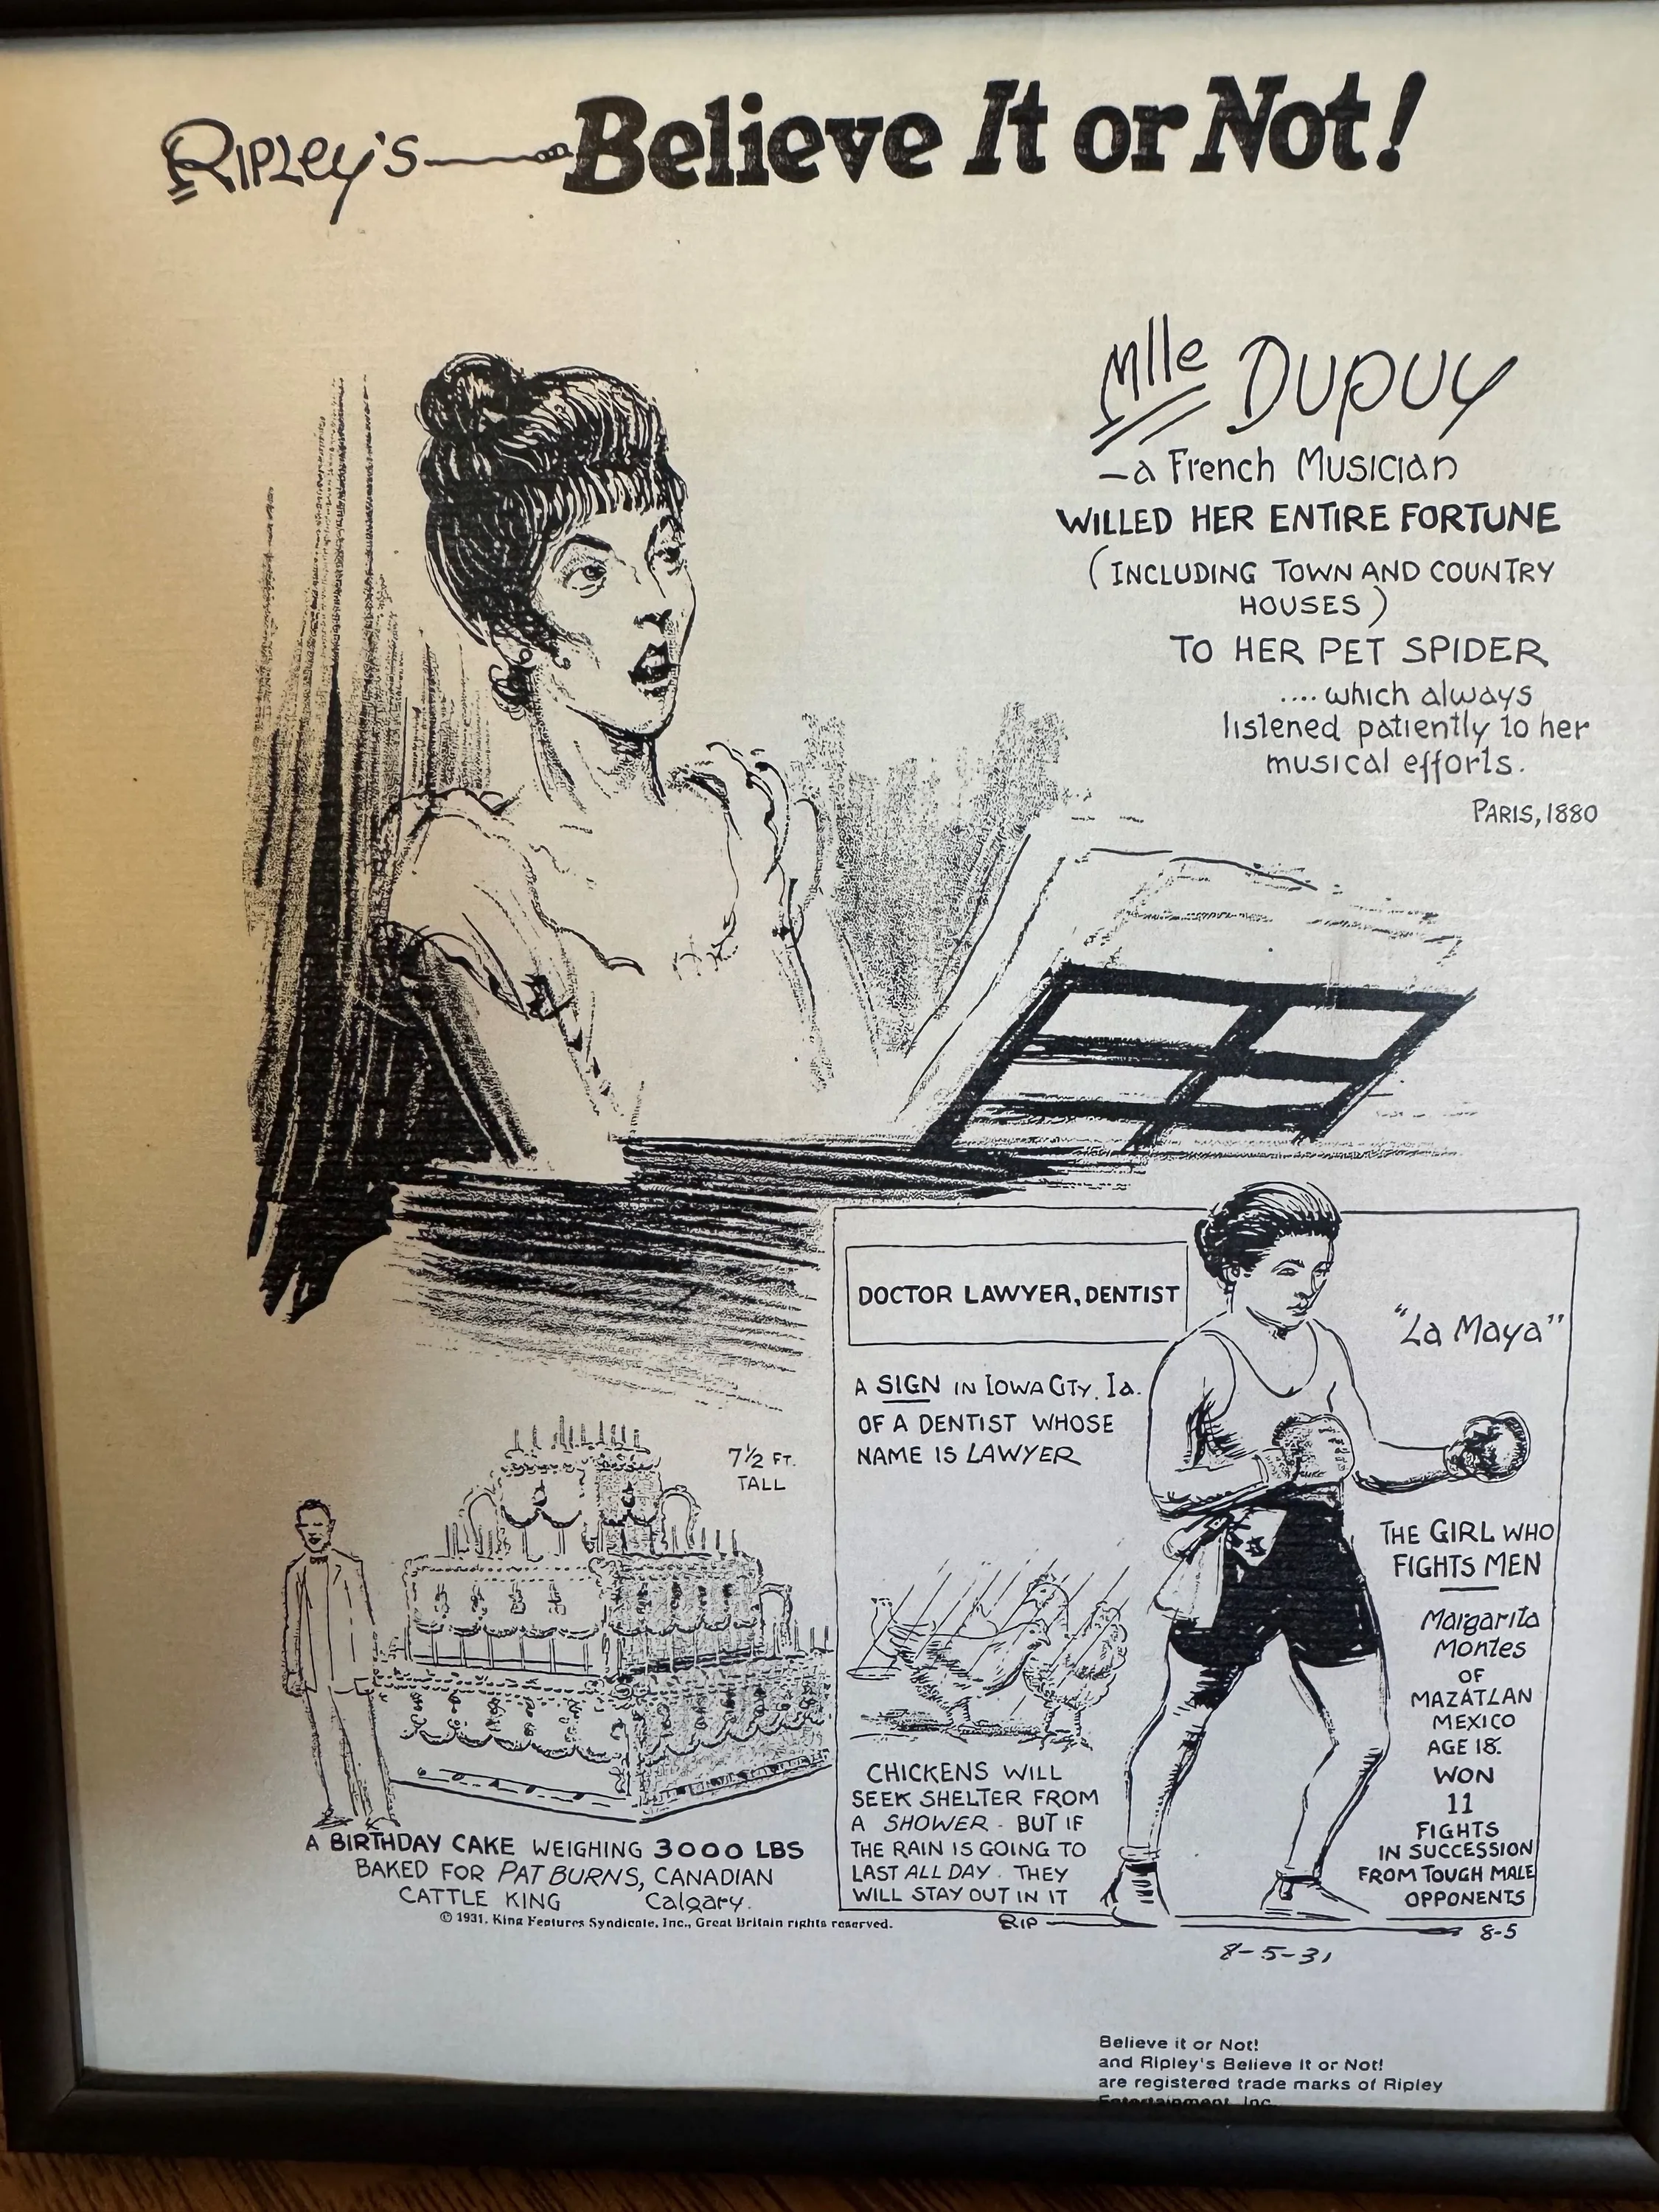 RIPLEY'S Believe It or Not!
Mlle DUPUY
—a French Musician
WILLED HER ENTIRE FORTUNE
(INCLUDING TOWN AND COUNTRY
HOUSES)
TO HER PET SPIDER
.... which always
listened patiently to her
musical efforts.
PARIS, 1880
DOCTOR LAWYER, DENTIST
A SIGN IN IOWA CITY, Ia.
OF A DENTIST WHOSE
NAME IS LAWYER
"La Maya"
THE GIRL WHO
FIGHTS MEN
Margarita
Montes
OF
MAZATLAN
MEXICO
AGE 18.
WON
11
FIGHTS
IN SUCCESSION
FROM TOUGH MALE
OPPONENTS
7½ FT.
TALL
A BIRTHDAY CAKE WEIGHING 3000 LBS
BAKED FOR PAT BURNS, CANADIAN
CATTLE KING Calgary.
CHICKENS WILL
SEEK SHELTER FROM
A SHOWER - BUT IF
THE RAIN IS GOING TO
LAST ALL DAY. THEY
WILL STAY OUT IN IT
© 1931, King Features Syndicate, Inc., Great Britain rights reserved.
RIP
8-5
8-5-31
Believe it or Not!
and Ripley's Believe It or Not!
are registered trade marks of Ripley
Entertainment, Inc.